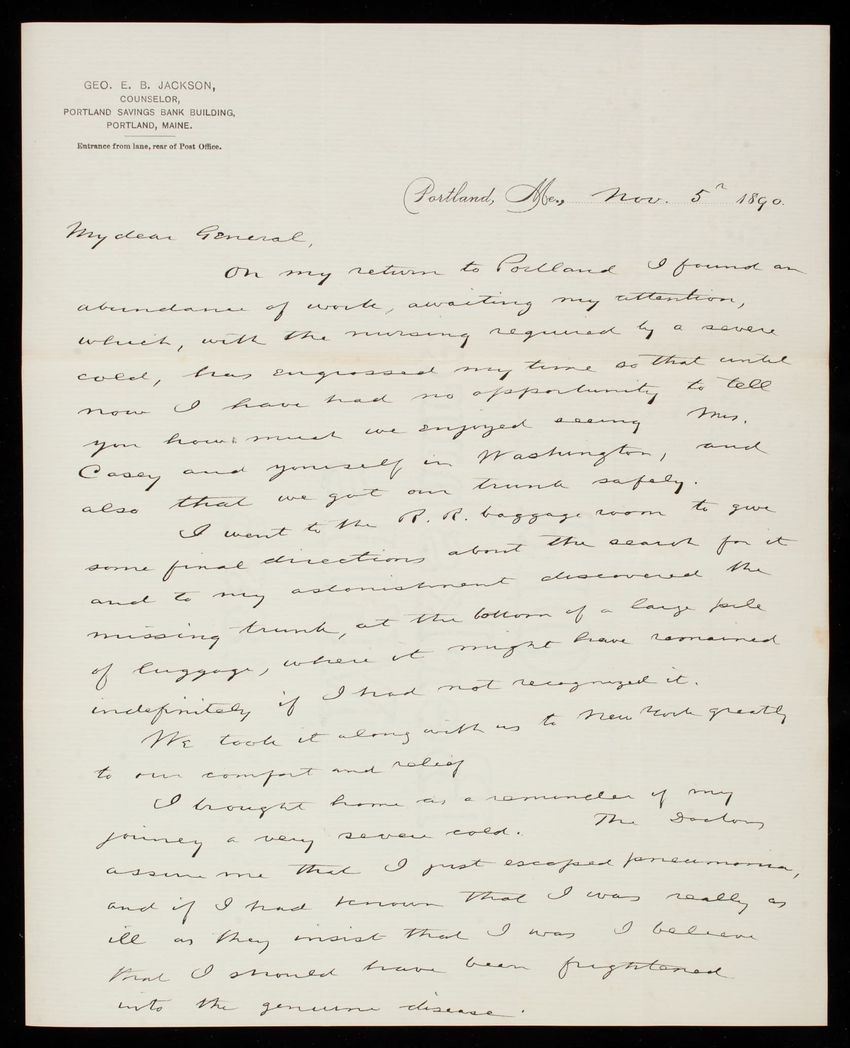 GEO. E. B. JACKSON,
COUNSELOR,
PORTLAND SAVINGS BANK BUILDING,
PORTLAND, MAINE.
Entrance from lane, rear of Post Office.
Portland, Me., Nov. 5" 1890.
My dear General,
On my return to Portland I found an
abundance of work, awaiting my attention,
which, with the nursing required by a severe
cold, has engrossed my time so that until
now I have had no opportunity to tell
you how much we enjoyed seeing Mrs.
Casey and yourself in Washington, and
also that we got our trunk safely.
I went to the R. R. baggage room to give
some final directions about the search for it
and to my astonishment discovered the
missing trunk, at the bottom of a large pile
of luggage, where it might have remained
indefinitely if I had not recognized it.
We took it along with us to New York greatly
to our comfort and relief
I brought home as a reminder of my
journey a very severe cold. The Doctors
assure me that I just escaped pneumonia,
and if I had known that I was really as
ill as they insist that I was I believe
that I should have been frightened
into the genuine disease.